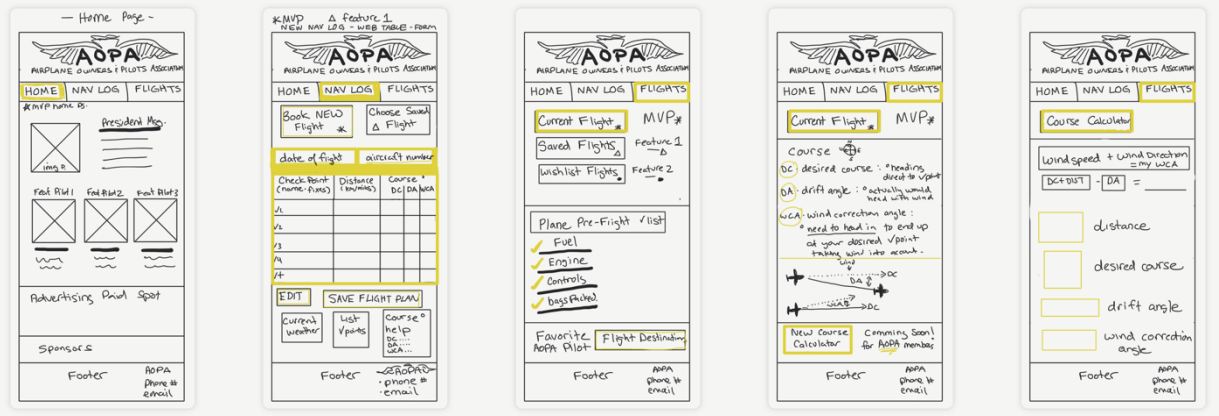 — Home Page -
AOPA
AIRPLANE OWNERS & PILOTS ASSOCIATION
HOME
NAV LOG
FLIGHTS
President Msg.
img P.
Feat Pilot1
Feat Pilot2
Feat Pilot3
Advertising Paid Spot
Sponsors
Footer
AOPA
phone #
email
*MVP △ feature 1
NEW NAV LOG - WEB TABLE - FORM
AOPA
AIRPLANE OWNERS & PILOTS ASSOCIATION
HOME
NAV LOG
FLIGHTS
Book NEW
Flight *
Choose Saved
△ Flight
date of flight
aircraft number
Check Point
(name-fixes)
Distance
Course °
DC DA WCA
√1
√2
√3
√4
√+
EDIT
SAVE FLIGHT PLAN
Current
weather
List
√points
Course°
help
DC....
DA....
WCA...
Footer
AOPA
· phone #
· email
AOPA
AIRPLANE OWNERS & PILOTS ASSOCIATION
HOME
NAV LOG
FLIGHTS
Current Flight *
MVP*
Saved Flights △
Feature 1
△
Wishlist Flights •
Feature 2
•
Plane Pre-Flight √ list
Fuel
Engine
Controls
bags Packed.
Favorite
AOPA Pilot
Flight Destination
Footer
AOPA
phone #
email
AOPA
AIRPLANE OWNERS & PILOTS ASSOCIATION
HOME
NAV LOG
FLIGHTS
Current Flight *
MVP*
Course
DC desired course : °heading
direct to √point
DA - drift angle : °actually would
head with wind
WCA - wind correction angle :
° need to head in to end up
at your desired √point
taking wind into acount.
wind
DC
DA
wind
DC
New Course
Calculator
Comming Soon!
for AOPA member
Footer
AOPA
phone #
email
AOPA
AIRPLANE OWNERS & PILOTS ASSOCIATION
HOME
NAV LOG
FLIGHTS
Course Calculator
Windspeed + Wind Direction
= my WCA
DC+DIST - DA =
distance
desired course
drift angle
wind correction
angle
Footer
AOPA
phone #
email